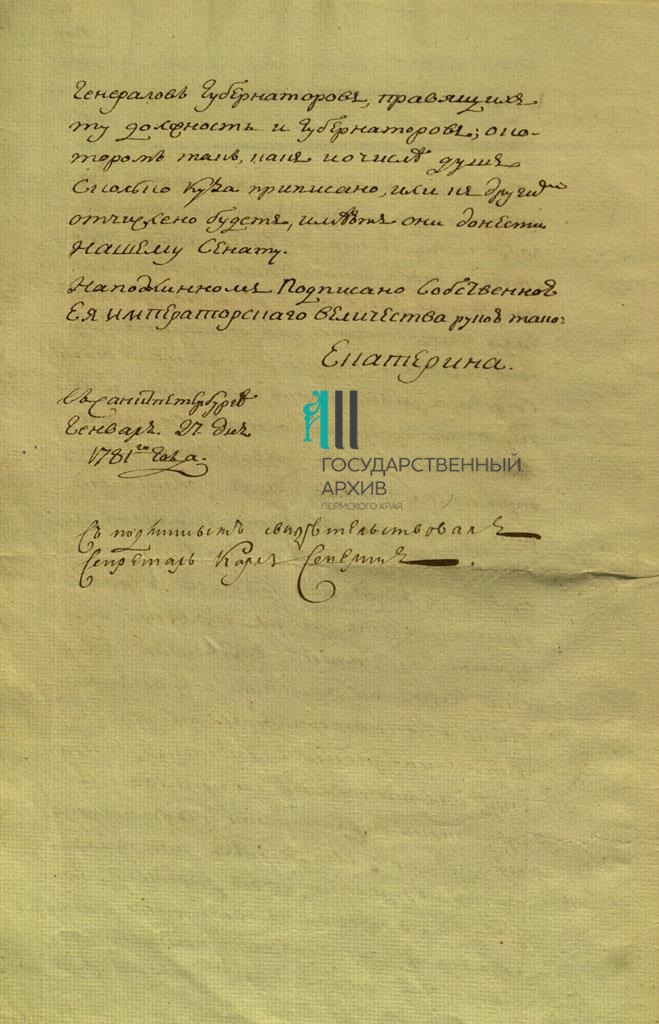 Генераловъ Губернаторовъ, правящихъ
ту должность и Губернаторовъ; о ко-
торомъ такъ, какъ и о числѣ душъ
Сколько куда приписано, или къ другимъ
отчислено будетъ, имѣютъ они донести
Нашему Сенату.
На подлинномъ Подписано Собственною
ЕЯ ИМПЕРАТОРСКАГО ВЕЛИЧЕСТВА рукою тако:
Екатерина.
Въ Санктпетербургѣ
Генваря. 27. дня
1781го Года.
ГОСУДАРСТВЕННЫЙ
АРХИВ
ПЕРМСКОГО КРАЯ
Съ подлиннымъ свидѣтельствовалъ
Секретарь Карлъ